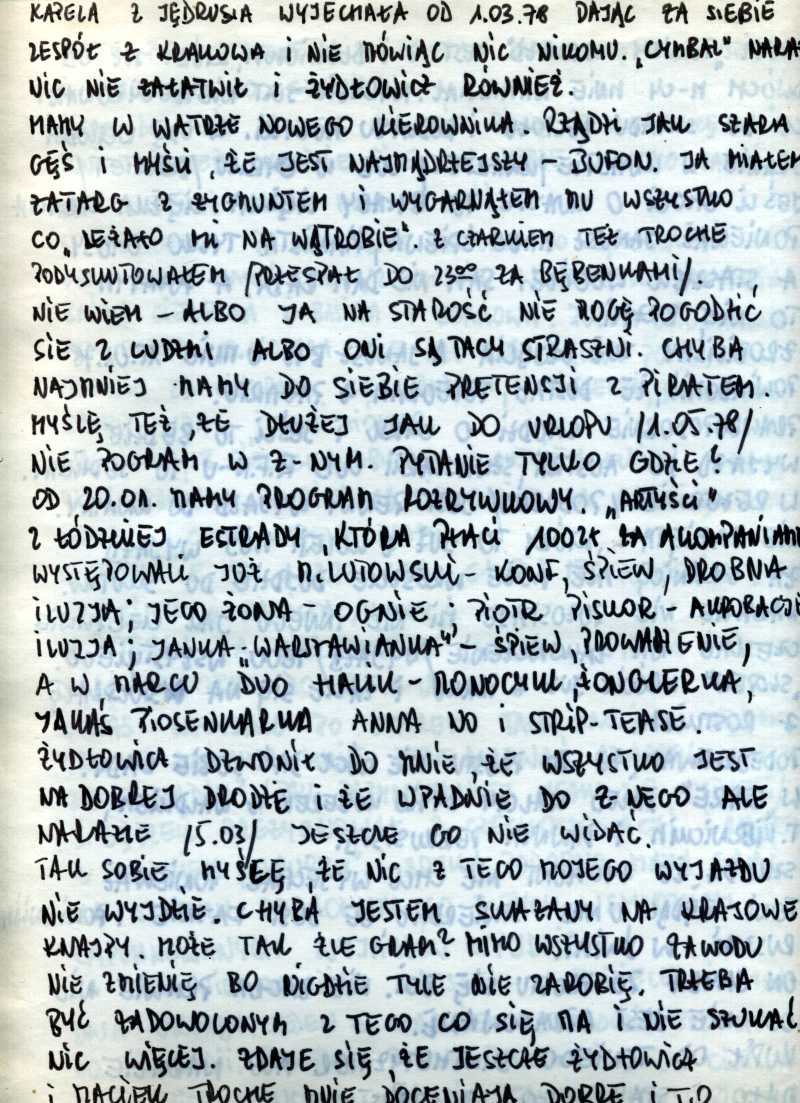 KAPELA Z JĘDRUSIA WYJECHAŁA OD 1.03.78 DAJĄC ZA SIEBIE
ZESPÓŁ Z KRAKOWA I NIE MÓWIĄC NIC NIKOMU. „CYMBAŁ" NARA
NIC NIE ZAŁATWIŁ I ŻYDŁOWICZ RÓWNIEŻ.
MAMY W WATRZE NOWEGO KIEROWNIKA. RZĄDZI JAK SZARA
GĘŚ I MYŚLI, ŻE JEST NAJMĄDRZEJSZY – BUFON. JA MIAŁEM
ZATARG Z ZYGMUNTEM I WYGARNĄŁEM MU WSZYSTKO
CO „LEŻAŁO MI NA WĄTROBIE". Z CZARKIEM TEŻ TROCHE
PODYSKUTOWAŁEM /PRZESPAŁ DO 23⁰⁰ ZA BĘBENKAMI/.
NIE WIEM – ALBO JA NA STAROŚĆ NIE MOGĘ POGODZIĆ
SIE Z LUDZMI ALBO ONI SĄ TACY STRASZNI. CHYBA
NAJMNIEJ MAMY DO SIEBIE PRETENSJI Z PIRATEM.
MYŚLĘ TEŻ, ŻE DŁUŻEJ JAK DO URLOPU /1.05.78/
NIE POGRAM W Z-NYM. PYTANIE TYLKO GDZIE?
OD 20.01. MAMY PROGRAM ROZRYWKOWY. „ARTYŚCI"
Z ŁÓDZKIEJ ESTRADY, KTÓRA PŁACI 100 ZŁ ZA AKOMPANIAM
WYSTĘPOWALI JUŻ M. LUTOWSKI – KONF, ŚPIEW, DROBNA
ILUZJA, JEGO ŻONA – OGNIE I PIOTR PISKOR – AKROBACJE
ILUZJA; JANKA „WARSZAWIANKA" – ŚPIEW, PROWADZENIE,
A W MARCU DUO HALIK – MONOCYKL, ŻONGLERKA,
JAKAŚ PIOSENKARKA ANNA NO I STRIP-TEASE.
ŻYDŁOWICZ DZWONIŁ DO MNIE, ŻE WSZYSTKO JEST
NA DOBREJ DRODZE I ŻE WPADNIE DO Z-NEGO ALE
NARAZIE /5.03/ JESZCZE GO NIE WIDAĆ.
TAK SOBIE MYŚLĘ, ŻE NIC Z TEGO MOJEGO WYJAZDU
NIE WYJDZIE. CHYBA JESTEM SKAZANY NA KRAJOWE
KNAJPY MOŻE TAK ŹLE GRAM? MIMO WSZYSTKO ZAWODU
NIE ZMIENIĘ BO NIGDZIE TYLE NIE ZAROBIĘ. TRZEBA
BYĆ ZADOWOLONYM Z TEGO CO SIĘ MA I NIE SZUKAĆ
NIC WIĘCEJ. ZDAJE SIĘ, ŻE JESZCZE ŻYDŁOWICZ
I MACIEK TROCHE MNIE DOCENIAJĄ DOBRE I TO